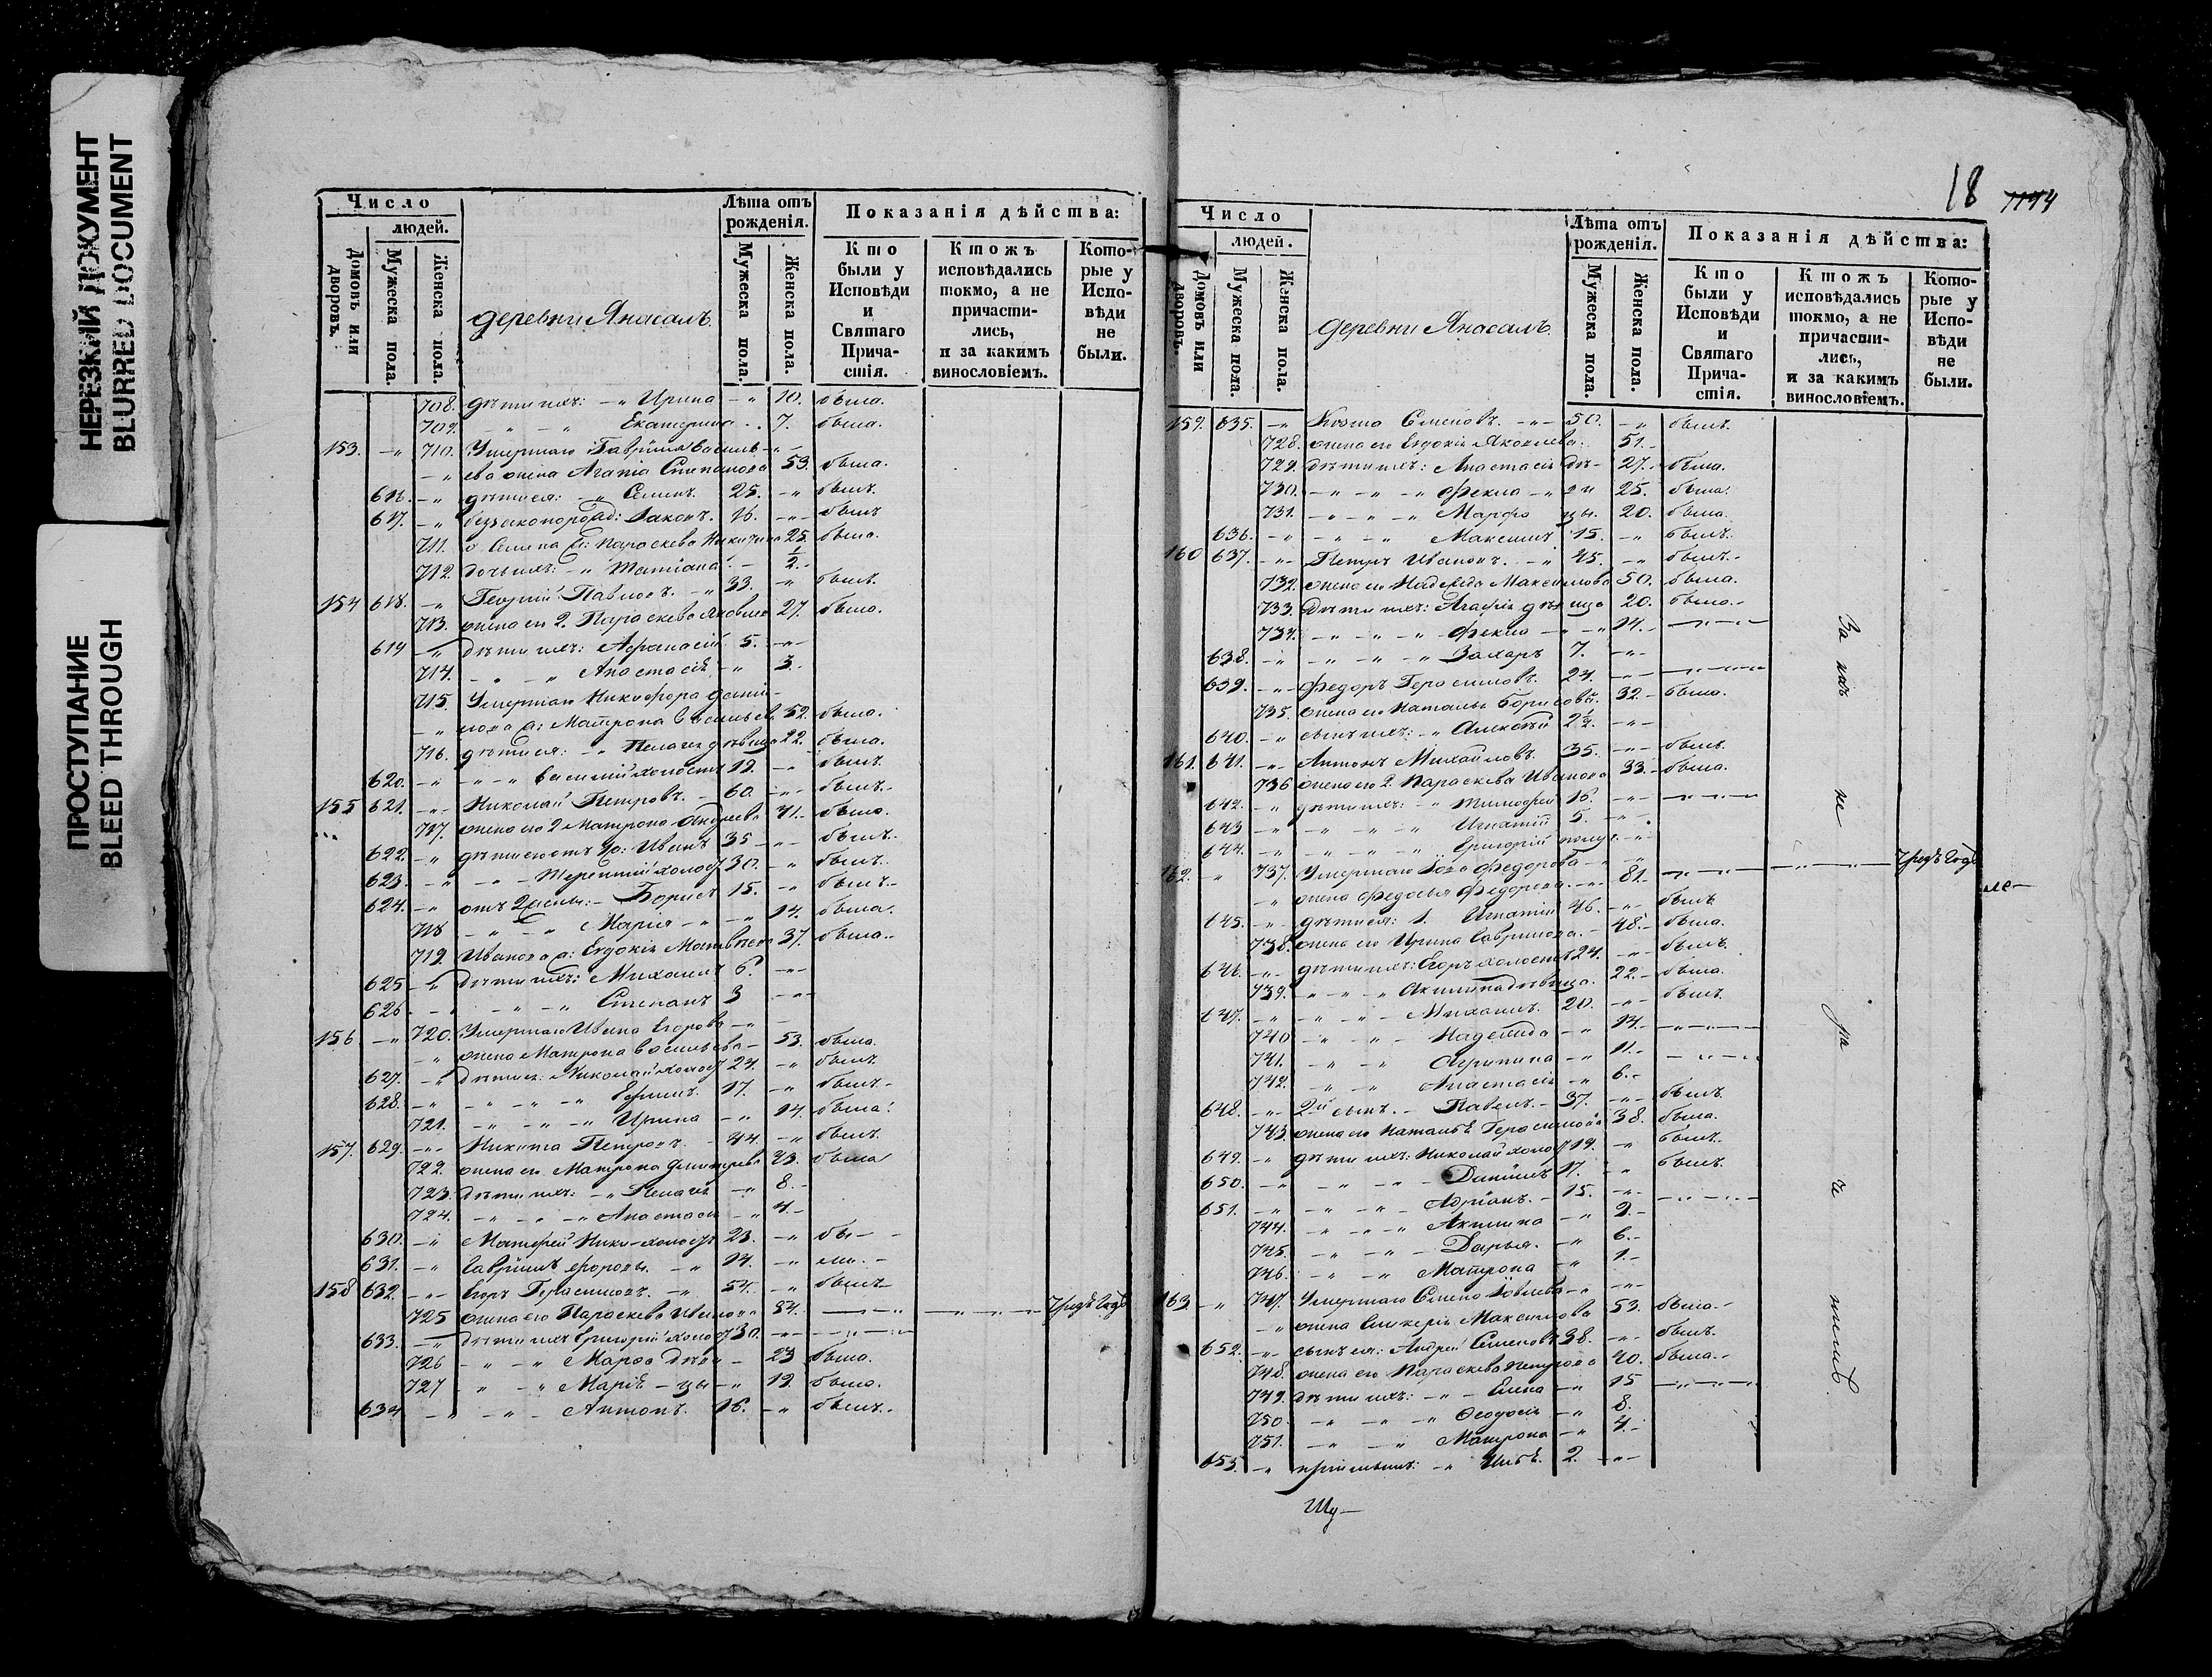 НЕРЕЗКИЙ ДОКУМЕНТ
BLURRED DOCUMENT
ПРОСТУПАНИЕ
BLEED THROUGH
Число
людей.
Домовъ или дворовъ.
Мужеска пола.
Женска пола.
деревни Янасалъ.
Лѣта отъ рожденія.
Мужеска пола.
Женска пола.
Показанія дѣйства:
Кто были у Исповѣди и Святаго Причастія.
Ктожъ исповѣдались токмо, а не причастились, и за какимъ винословіемъ.
Которые у Исповѣди не были.
708. дѣти ихъ: -"- Ирина -"- 10. была.
709. -"- -"- Екатерина 7. была.
153. -"- 710. Умершаго Гавріила Василь-
-"- ева жена Агапія Степанова 53. была.
616. -"- дѣти ея: -"- Семенъ. 25. -"- былъ.
617. -"- 16. -"- былъ
711. Параскева Никитина 25. была.
712. дочь ихъ: -"- Татіана. - ½.
154 618. -"- Георгій Павловъ. -"- 33. -"- былъ.
713. жена его 2. Параскева Яковлева 27. была.
619 -"- дѣти ихъ: Афанасій 5. -"-
714. -"- -"- Анастасія -"- 3.
715. Умершаго Никифора Дани-
-"- лова ж: Матрона Васильева 52. была.
716. дѣти ея: -"- Пелагея дѣвица 22. была.
620. -"- -"- Василій холостъ 19. -"- былъ.
155 621. -"- Николай Петровъ. - 60. -"- былъ.
717. жена его 2 Матрона Андреева 41. была.
622. -"- Иванъ 35 -"- былъ.
623. -"- -"- Терентій холост 30. -"- былъ.
624. -"- отъ 2 жены: - Борисъ 15. -"- былъ.
718 -"- -"- Марія -"- 14. была.
719. Иванова ж: Евдокія Матвѣева 37. была.
625 -"- дѣти ихъ: Михаилъ 6. -"-
626 -"- -"- Степанъ 3 -"-
156 -"- 720. Умершаго Ивана Егорова -"-
-"- жена Матрона Васильева 53. была.
627. -"- дѣти ея: Николай холост 24. -"- былъ.
628. -"- -"- -"- Ефимъ. 17. -"- былъ.
721. -"- -"- Ирина -"- 14. была.
157. 629. -"- Никита Петровъ. - 44. -"- былъ.
722. жена его Матрона Дмитрева 43. была
723. дѣти ихъ: -"- Пелагея -"- 8.
724. -"- -"- Анастасія -"- 4.
630. -"- Матфей Ники- холосты 23. -"- бы-
631. -"- Гавріилъ форовы. -"- 14. -"- ли. -
158 632. -"- Егоръ Герасимовъ. -"- 54. -"- былъ
725 жена его Параскева Иванова 54. -"- -"- чрезъ годъ
633. -"- дѣти ихъ Григорій холост 30. -"- -"-
726 -"- -"- Марфа дѣви- 23 была.
727 -"- -"- Марія - цы -"- 19. была.
634 -"- -"- Антонъ. 16. -"- былъ.
18 1194
Число
людей.
Домовъ или дворовъ.
Мужеска пола.
Женска пола.
деревни Янасалъ.
Лѣта отъ рожденія.
Мужеска пола.
Женска пола.
Показанія дѣйства:
Кто были у Исповѣди и Святаго Причастія.
Ктожъ исповѣдались токмо, а не причастились, и за какимъ винословіемъ.
Которые у Исповѣди не были.
159. 635. -"- Козма Семеновъ. -"- 50. -"- былъ.
728. жена его Евдокія Яковлева. 51.
729. дѣти ихъ: Анастасія дѣ- 27. была.
730. -"- -"- Фекла -"- 25. была.
731. -"- -"- Марфа цы. 20. была.
636. -"- -"- Максимъ 15. -"- былъ.
160 637. -"- Петръ Ивановъ. -"- 45. -"- былъ.
732. жена его Надежда Максимова 50. была.
733. дѣти ихъ: Агафія дѣвица 20. была.
734. -"- -"- Фекла -"- 14. -"-
638. -"- -"- Захаръ 7. -"-
639. -"- Федоръ Герасимовъ. 24. -"- -"-
735. жена его Наталья Борисова. 32. была.
640. -"- сынъ ихъ: -"- Алексѣй 2½. -"-
161. 641. -"- Антонъ Михайловъ. 35. -"- былъ.
736 жена его 2. Параскева Иванова 33. была.
642. -"- дѣти ихъ: -"- Тимофей 16. -"- -"-
643 -"- -"- Игнатій 5. -"-
644. -"- -"- Григорій -"-
162. -"- 737. Умершаго Федорова -"-
-"- жена Федосья Федорова. -"- 81. -"- -"- чрезъ годъ
645. -"- дѣти ея: 1. Игнатій 46. -"- былъ
738. жена его Ирина Гаврилова. - 48. была.
646. -"- дѣти ихъ: Егоръ холостъ 24. -"- былъ.
739. -"- -"- Акилина дѣвица. 22. была.
647. -"- -"- Михаилъ. 20. -"- былъ.
740 -"- -"- Надежда -"- 14. -"-
741. -"- -"- Агрипина -"- 11. -"-
742. -"- -"- Анастасія -"- 6.
648. -"- 2й сынъ. - Павелъ. - 37. -"- былъ.
743. жена его Наталья Герасимова 38. была.
649. -"- дѣти ихъ: Николай холост 19. -"- былъ.
650. -"- -"- Даніилъ 17. -"- былъ.
651. -"- -"- Адріанъ. - 15. -"- -"-
744. -"- -"- Акилина -"- 9.
745. -"- -"- Дарья. -"- 6.
746. -"- -"- Матрона -"- 1.
163 -"- 747. Умершаго Семена -"-
-"- жена Гликерія Максимова 53. была.
652. -"- сынъ ея: Андрей Семеновъ 38. -"- былъ.
748. жена его Параскева Петрова 40. была.
749. дѣти ихъ: -"- Елена -"- 15 -"-
750. -"- -"- Феодосія -"- 8.
751. -"- -"- Матрона -"- 4.
653. -"- -"- 2. -"-
не